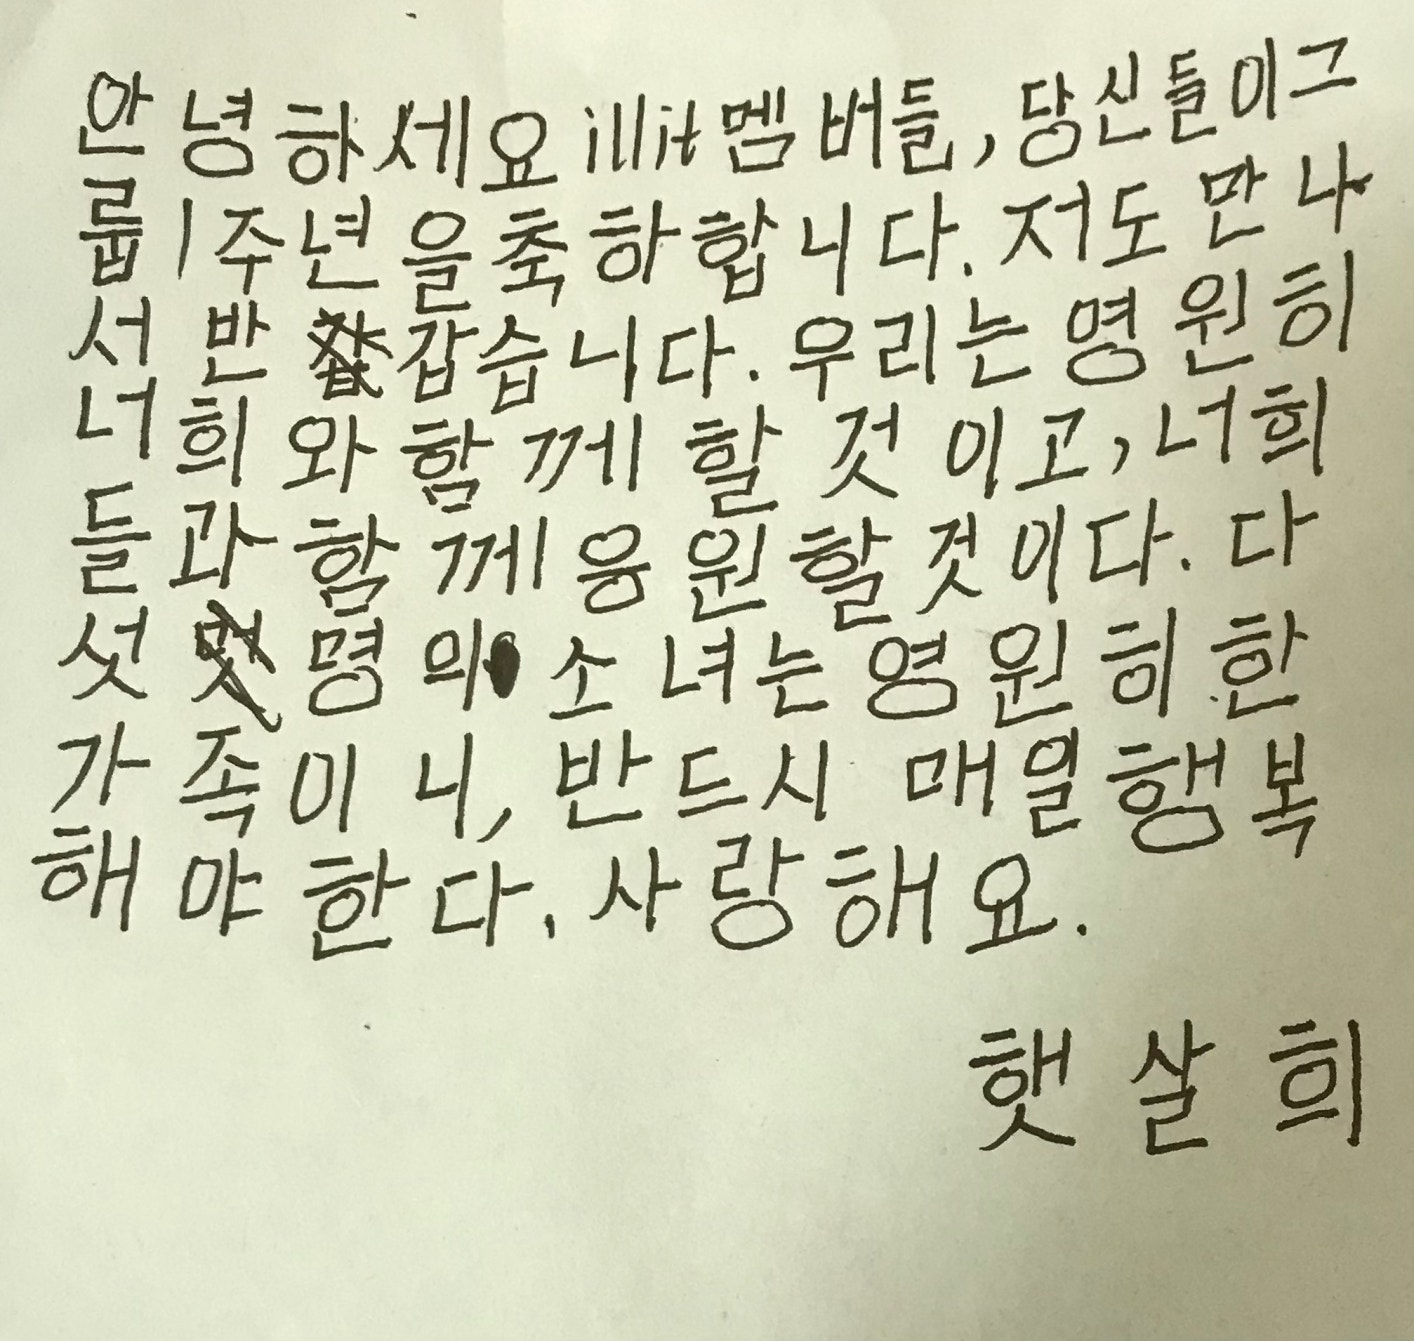 안녕하세요 illit 멤버들, 당신들이 그
룹 1주년을 축하합니다. 저도 만나
서 반갑습니다. 우리는 영원히
너희와 함께 할 것이고, 너희
들과 함께 응원할것이다. 다
섯 명의 소녀는 영원히 한
가족이니, 반드시 매일 행복
해야 한다. 사랑해요.
햇살희